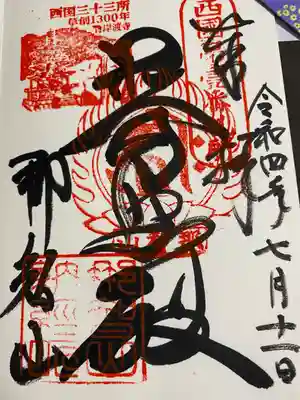 西国三十三所
草創1300年
青岸渡寺
奉拝
令和四年七月十一日
普照殿
那智山